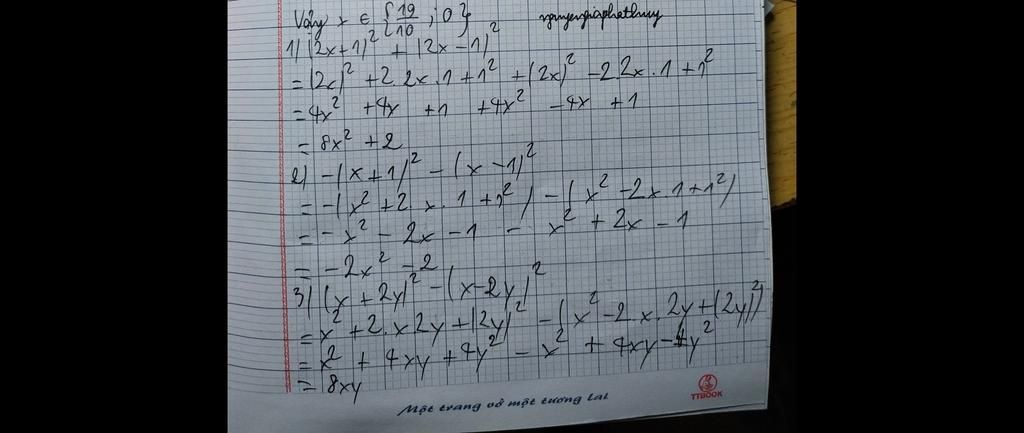 Vậy x ∈ {19/10 ; 0}
nguyengiaphathuy
1) (2x+1)² + (2x-1)²
= (2x)² + 2.2x.1 + 1² + (2x)² - 2.2x.1 + 1²
= 4x² + 4x + 1 + 4x² - 4x + 1
= 8x² + 2
2) -(x+1)² - (x-1)²
= -(x² + 2.x.1 + 1²) - (x² - 2x.1 + 1²)
= -x² - 2x - 1 - x² + 2x - 1
= -2x² - 2
3) (x + 2y)² - (x-2y)²
= x² + 2.x2y + (2y)² - (x² - 2.x.2y + (2y)²)
= x² + 4xy + 4y² - x² + 4xy - 4y²
= 8xy
Một trang vở một tương lai
TTBOOK